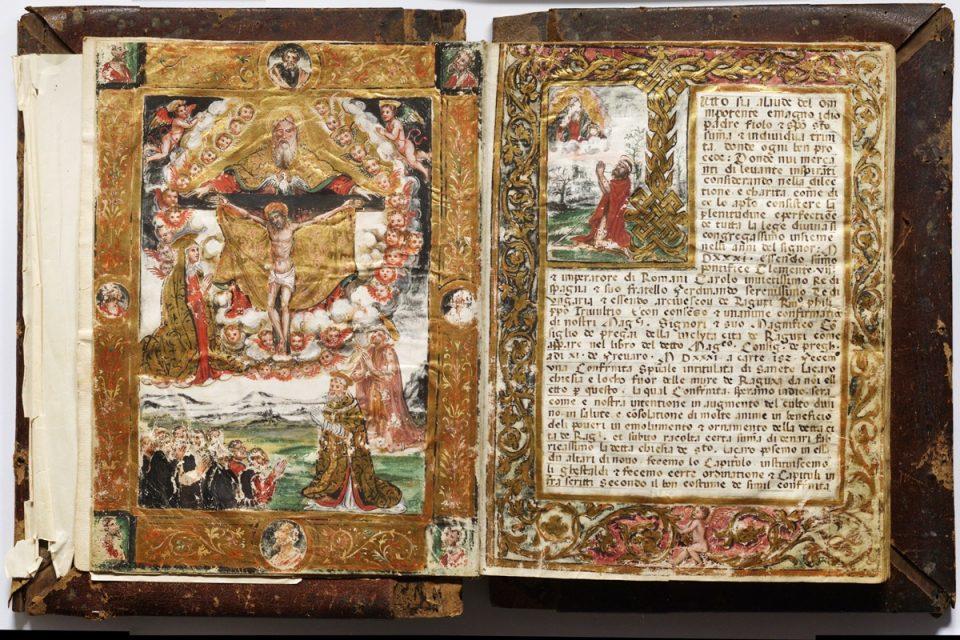 Utto sia alaude del om
nipotente e magno idio
padre fiolo & spo sto
suma & indiuidua trini
ta, donde ogni ben pro
cede: Donde nui merca
nti di leuante inspirati
considerando nella dilec
tione e charita, come di
ce lo aplo consistere la
plenitudine e perfectiõe
de tutta la lege diuina si
congregassimo insieme
nelli anni del signor: M
D XXXI. essendo sũmo
pontifice Clemente. VII.
& imperatore di Romani Carolo inuictissimo Re di
spagna & suo fratello Ferdinando serenissimo Re di
Vngaria & essendo arciuescou de Raguxi
Triuultio & con consenso & unanime confirmatiõ
di nostri Signori & suo Magnifico Cõ
siglio de pregati della inclyta cita de Raguxi come
appare nel libro del detto Consig. de pregati
adi XI. de Freuaro. M D XXXI. a carte 152 Fecem
vna Confrnita Spũale intitulata di Sancto Lazaro
chiesia & locho fuor delle mure de Raguxa da noi el
etto p questo. la qual Confrnita, speramo indio, sera
come e nostra intentione in augmento del culto diui
no, in salute, e cõsolatione di molte anime in beneficio
deli poueri in emolumento & ornamento della detta ci
ta de Rag. et subito racolta certa suma di denari fab
ricassimo la detta chiesia de Sto. Lazaro posemo in es
sa altari di nouo fecemo lo Capitolo instituissemo
li ghestaldi & fecemo certe ordinatione & Capituli in
fra scritti Secondo il bon costume de simil confrnita